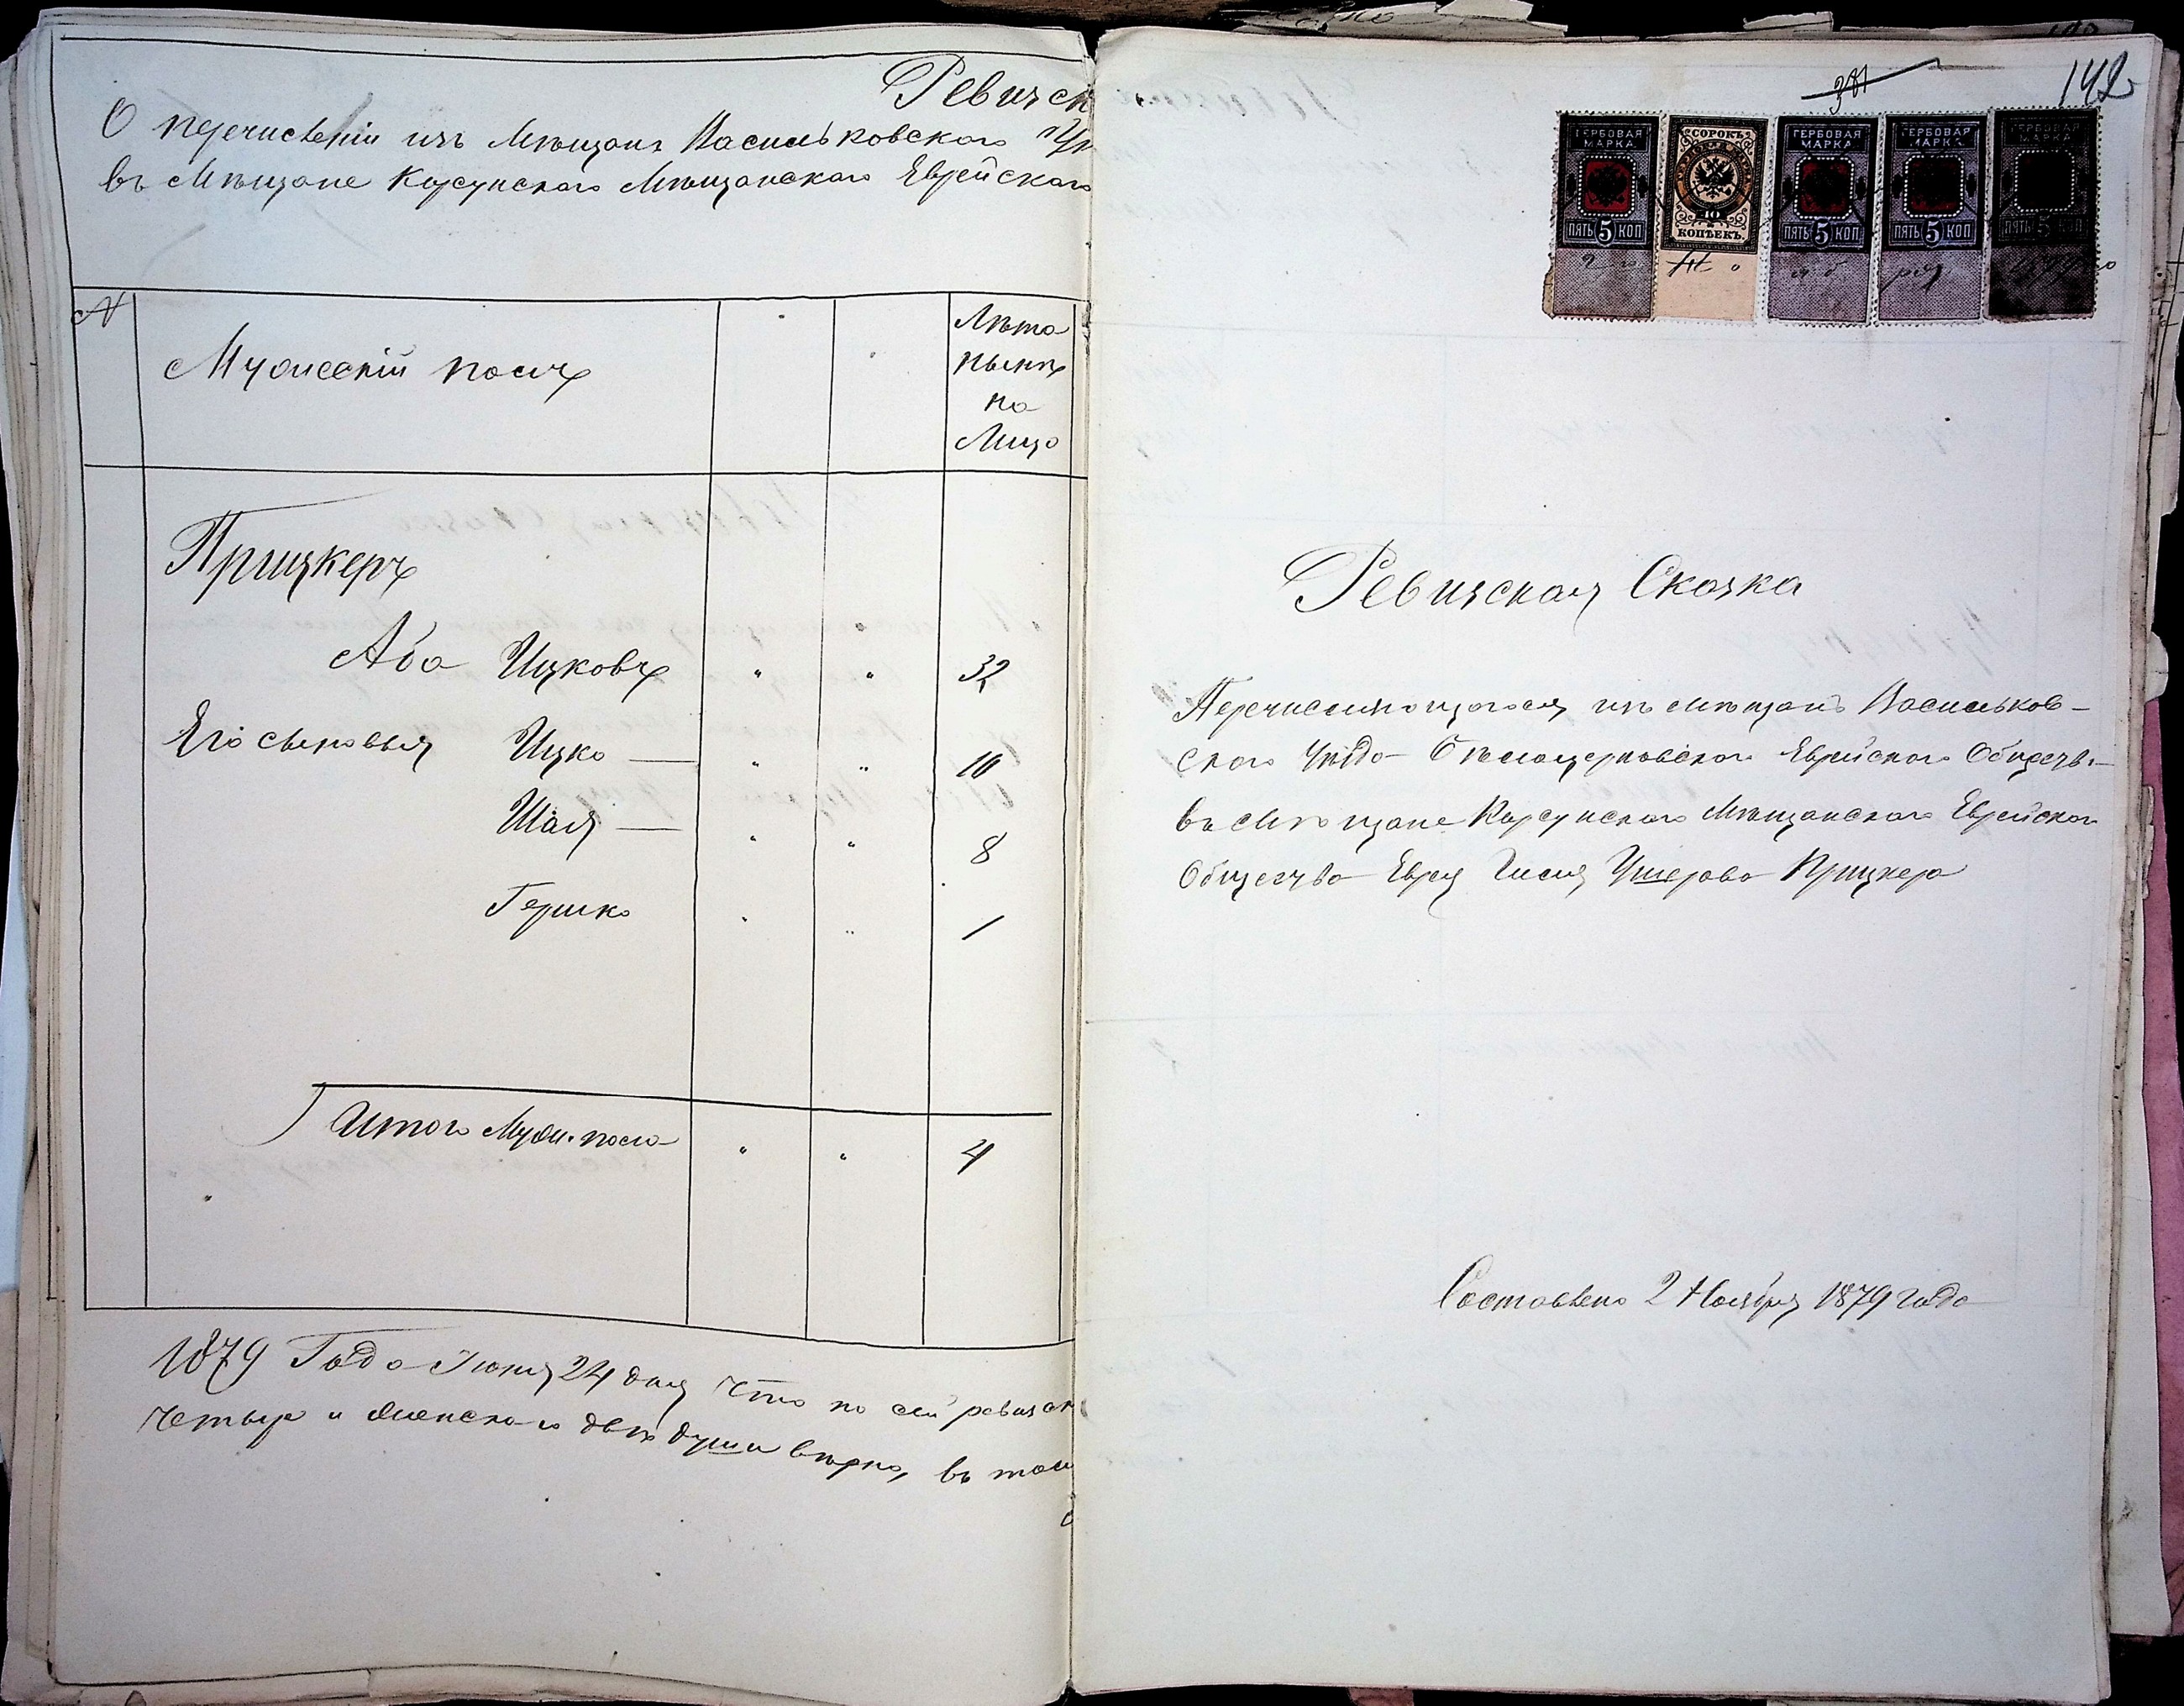 Ревизск
О перечислении изъ Мѣщанъ Васильковского Уѣ
въ Мѣщане Корсунского Мѣщанского Еврейского
№
Мужескій полъ
Лѣта
нынѣ
на
Лицо
Прицкеръ
Аба Ицковъ " " 32
Его сыновья Ицко — " " 10
Шая — " " 8
Гершко " " 1
Итого Муж. пола " " 4
1879 Года Іюня 24 дня Что по сей ревизск
четыре и женского двѣ души вѣрно, въ том
142
ГЕРБОВАЯ МАРКА ПЯТЬ 5 КОП
СОРОКЪ КОПѢЕКЪ
ГЕРБОВАЯ МАРКА ПЯТЬ 5 КОП
ГЕРБОВАЯ МАРКА ПЯТЬ 5 КОП
ГЕРБОВАЯ МАРКА ПЯТЬ 5 КОП
Ревизская Сказка
Перечисляющагося изъ мѣщанъ Васильков-
ского Уѣзда Бѣлоцерковского Еврейского Обществ.
въ Мѣщане Корсунского Мѣщанского Еврейского
Общества Еврея Ушерова Прицкера
Составлена 2 Ноября 1879 года